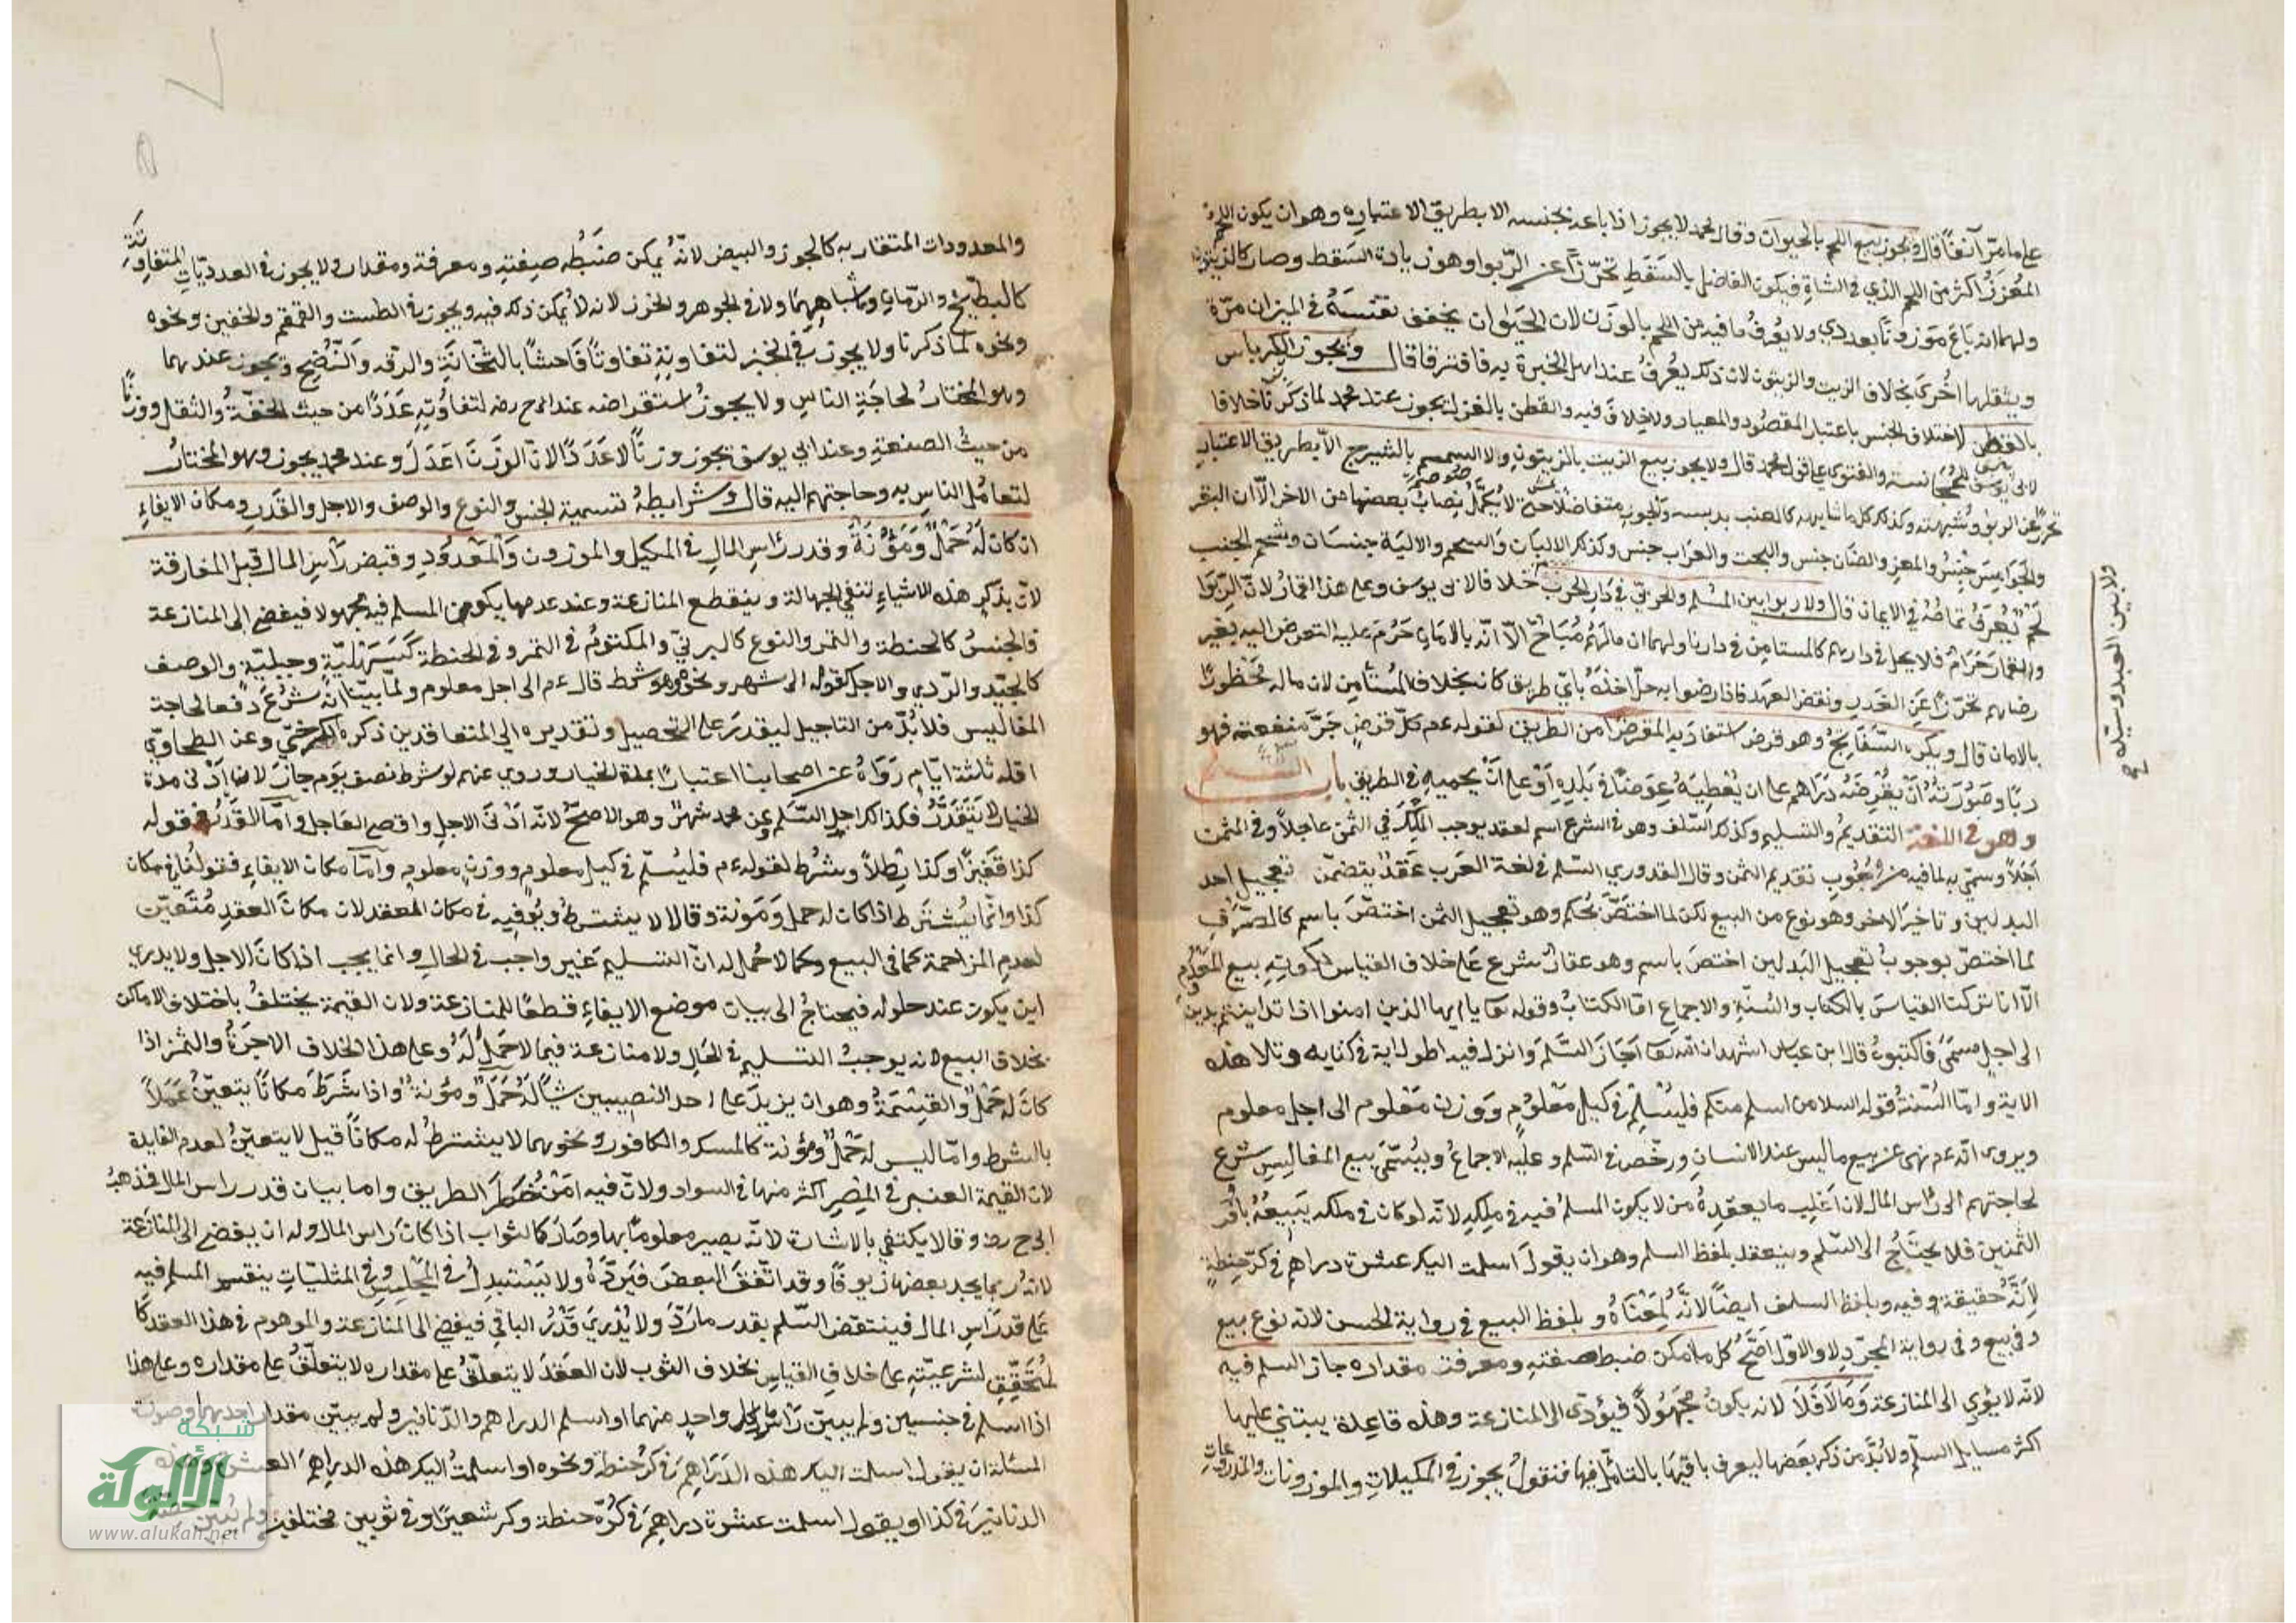 على ما مرّ آنفًا قال ويجوز بيع اللحم بالحيوان وقال محمد لا يجوز اذا باعه بجنسه الا بطريق الاعتبار وهو ان يكون اللحم
المُفرَزُ اكثر من اللحم الذي في الشاة فيكون الفاضل بالسَقَطِ تحرّزًا عن الرّبوا وهو زيادة السَقط وصار كالزيتون
ولهما انه باعَ مَوزونًا بعددي ولا يُعرفُ ما فيه من اللحم بالوَزن لان الحَيَوان يخفف نفسَهُ في الميزان مرّة
ويثقلها اُخرى بخلاف الزيت والزيتون لان ذلك يُعرفُ عند اهل الخبرة به فافترقا قال ويجوز الكِرباس
بالقطن لاختلاف الجنس باعتبار المقصُود والمعيار ولا خلاف فيه والقطن بالغزل يجوز عند محمد لما ذكرنا خلافا
لابى يوسف للمجانسة والفتوى على قول محمد قال ولا يجوز بيع الزيت بالزيتون ولا السمسم بالشيرج الّا بطريق الاعتبار
تحرّزًا عن الربوا وشبهته وكذلك كل ما شابهه كالعنب بدبسه ويجوز متفاضلًا حتى لا يُكَمَّلُ نِصابُ بعضها من الاخر الّا ان البقر
والجَوَاميسَ جنسٌ والمعز والضّان جنس والبخت والعراب جنس وكذلك الالبان والشحم والالية جنسَان وشحم الجنب
لحمٌ يُعرَفُ تمامُهُ في الايمان قال ولا ربوا بين المسلم والحربيّ في دَارِ الحربِ خلافا لابى يوسف وعلى هذا القمار لانّ الرّبوَا
والقمار حَرَامٌ فلا يحل في دارهم كالمستامِنِ في دارنا ولهما ان مالَهُم مُبَاحٌ الّا انّه بالامَانِ حَرُمَ عليه التعرض اليه بغير
رضاهم تحرّزًا عَنِ الغَدرِ ونقض العهد فاذا رضوا به حلّ اخذُهُ بايّ طريق كان بخلاف المُستأمِنِ لان ماله مَحظُورًا
بالامان قال ويكره السّفَاتِجُ وهو قرض استفادَ به المقرضُ امن الطريق لقوله ءم كلّ قرضٍ جَرَّ منفعةً فهو
ربًا وصُورَتهُ أنْ يُقْرِضَهُ دَرَاهم على ان يُعْطِيَهُ عِوَضًا في بَلَدِه اَوْ على اَنْ يَحميه في الطريق باب السَلَم
وهو في اللغة التقديمُ والتسليم وكذلك السّلف وهو في الشرع اسم لعقد يوجب المِلْكَ في الثّمن عاجلًا وفي المثمن
آجلًا وسمّي به لما فيه من وُجُوبِ تقديم الثمن وقال القدوري السّلم في لغة العَرب عَقدٌ يتضمّن تعجيلَ احد
البدلين وتاخيرَ الاخر وهو نوع من البيع لكن لما اختصَّ بحُكم وهو تعجيل الثمن اختصّ باسم كالصّرفِ
لما اختصّ بوجوبُ تعجيل البَدلين اختصَ باسم وهو عقدٌ شرع عَلى خلاف القياس لكونِهِ بيع المَعْدُومِ
الّا انا تركنا القياسَ بالكتاب والسُنّةِ والاجماعِ امّا الكتابُ فقوله تعا يا ايها الذين امنوا اذا تداينتم بدين
الى اجلٍ مسمّى فاكتبوهُ قال ابن عباس اشهد ان الله تعا اَجَازَ السَّلَمَ وَانزل فيه اطول اية في كتابه وتلا هذه
الاية وامّا السُنّةُ قوله السلام من اسلم منكم فليُسْلِمْ في كيل مَعْلُومٍ وَوَزن مَعْلوم الى اجل معلوم
ويروى انّه ءم نهى عن بيع ما ليس عند الانسانِ ورخّص في السّلم وعليه الاجماعُ ويُسَمّى بيع المفاليسِ شرع
لحاجتهم الى رَأس المال لان اَغلِب ما يعقدِهُ من لا يكون المسلمُ فيه في مِلكِهِ لانّه لو كان في ملكه يَبِيعُهُ باَوفر
الثمنين فلا يحتَاجُ الى السَّلَمِ وينعقد بلفظ السلم وهو ان يقولَ اسلمت اليكَ عشرة دراهم في كرّ حِنطةٍ
لِاَنَّهُ حقيقةٌ فيه وبلفظ السلف ايضًا لانَّهُ بِمَعْنَاهُ وبلفظ البيع في رواية الحسن لانّه نوع بيع
وفي رواية المجرّدِ لا والاوّل اَصَحُّ كل ما مكن ضبط صفته ومعرفت مقداره جاز السلم فيه
لانّه لا يؤدى الى المنازعة وَمَا لَا فَلَا لانه يكونُ مَجهُولًا فيؤدّى الى المنازعة وهذه قاعِدة يبتني عليها
اكثر مسايل السلم ولا بُدَّ من ذكر بَعضِها ليعرف باقيهَا بالتامّلِ فيها فنقولُ يجوز في المكيلاتِ والموزونات والمذروعاتِ
ولا بين العبد وسيّده صح
والمعدودات المتقاربة كالجوز والبيض لانّه يُمكن ضَبْطُه صِفتِهِ ومعرفة ومقداره ولا يجوز في العدديّاتِ المتفاوِتَةِ
كالبطّيخِ والرّمانِ واَشباهِهِمَا ولا في الجوهر والخرز لانه لا يُمكن ذلك فيه ويجوز في الطست والقمقم والخفين ونحوه
ونحوه لما ذكرنا ولا يجوز في الخبز لتفاوتِهِ تفاوتًا فَاحشًا بالثّخانَةِ والرّقه والنُضْجِ ويَجوز عندهما
وهو المختارُ لحاجَةِ الناسِ ولا يجوزُ استقراضه عند الح رضه لتفاوُتِهِ عَدَدًا من حيث الخفّةُ والثقل ووزنًا
من حيثُ الصنعةِ وعند ابي يوسف يجوز وزنًا لا عَدَدًا لانّ الوَزنَ اَعدَل وعند محمد يجوز وهو المختارُ
لتعامُل الناسِ به وحاجتهم اليه قال وشرايطهُ تسمية الجنس والنوع والوصف والاجل والقَدَرِ ومكان الايفاءِ
ان كان لَهُ حَمْلٌ وَمَؤُنَةٌ وقدر رَأسِ المالِ في المكيل والموزون وَالمَعْدُودِ وقبض رَأسِ المال قبل المفارقة
لانّ بذكر هذه الاشياءِ تنتفي الجهالة وينقطع المنازعة وعند عدمها يكون المسلم فيه مجهولا فيفضى الى المنازعة
فالجنسُ كالحنطة والتمر والنوع كالبرنيّ والمكتومُ في التمر وفي الحنطة كَسَهْلِيّةٍ وجبليّةٍ والوصف
كالجيّد والرّدي والاجل كقوله الى شهر ونحوه وهو شرط قال ءم الى اجل معلوم ولما بيّنا انّه شُرعَ دفعا لحاجة
المفاليس فلا بُدّ من التاجيل ليقدرَ على التحصيل وتقديره الى المتعاقدين ذكره الكرخيّ وعن الطحاويّ
اقله ثلثة ايّام رَوَاهُ عن اصحابنا اعتبارًا بمدة الخيار وروي عنهم لو شرط نصف يَوم جازَ لانه اَدْنى مدة
الخيار لَا يَتَقدَّرُ فكذلك اجل السّلم وعن محمد شهرٌ وهو الاصحّ لانّه اَدْنى الاجل واقصى العَاجل وامّا القدر فقوله
كذا قَفيزًا وكذا رِطلًا ويشرُط لقوله ءم فليُسلِم في كيل معلومٍ ووزنٍ معلومٍ وامّا مكان الايفاء فقوله في مكان
كذا وانّما يُشتَرط اذا كان له حمل وَمَؤنة وقالا لا يشترطُ ويُوفيه في مكان العقد لان مكانَ العقدِ مُتَعَيّن
لعدم المزاحمة كما في البيع وكما لا حَمْل له انّ التسليم غير واجب في الحال وانما يجب اذا كانَ الاجل ولا يدري
اين يكون عند حلوله فيحتاجُ الى بيان موضع الايفاءِ قطعًا للمنازعة ولان القيمة يختلفُ باختلاف الاماكن
بخلاف البيع لانه يوجبُ التسليم في الحَالِ ولا منازعة فيما لا حَمْلَ لَهُ وعلى هذا الخلاف الاجرَةُ والثمن اذا
كانَ له حَمْلٌ والقِسْمَةُ وهو ان يزيدَ على احد النصيبين شيًا لَهُ حَمْلٌ ومؤنةٌ واذا شَرَطَ مكانًا يتعيّن عَمَلًا
بالشرط وامّا ليس له حَمْلٌ ومُؤنة كالمسك والكافور ونحوهما لا يشترطُ له مكانًا قيل لا يتعيّنُ لعدم الفايدة
لان القيمة العنبر في المِصرِ اكثر منها في السواد ولانّ فيه امنُ خَطَرَ الطريق واما بيان قدر راس المال فذهبُ
ابي ح رضه وقالا يكتفي بالاشارة لانّه يصير معلومًا بها وصَارَ كالثواب اذا كانَ رَاس المال وله ان يفضى الى المنازَعة
لانه ربما يجد بعضها زيوفًا وقد اتّفقَ البعضَ فيَردّهُ ولا يَسْتبدِلُ في المجلِسِ وفي المثليّاتِ ينقسم المسلم فيه
عَلى قدر رَاسِ المال فينتقض السّلم بقدر ما رَدَّ ولا يُدْرَي قَدْرُ الباقي فيفضى الى المنازعة والموهوم في هذا العقد كَا
لمُتحَقِّقِ لشرعيّتِهِ على خلافِ القياسِ بخلاف الثوب لان العَقدَ لا يتعلّقُ على مقداره لا يتعلّقُ على مقداره وعلى هذا
اذا اسلم في جنسين ولم يبيّن رَاسُ كل واحدٍ منهما او اسلم الدراهم والدّنانير ولم يبيّن مقدار احدهما وصورت
المسئلة ان يقول اسلمت اليك هذه الدَّرَاهِمَ في كرّ حنطة ونحوه او اسلمتُ اليك هذه الدراهِمَ العشرة وهذه
الدنانيرَ في كذا او يقول اسلمت عشرة دراهِمَ في كُرّ حنطة وكر شعيرٍ او في ثوبين مختلفين ولم يُبيّن حصّة
شبكة
الألوكة
www.alukah.net